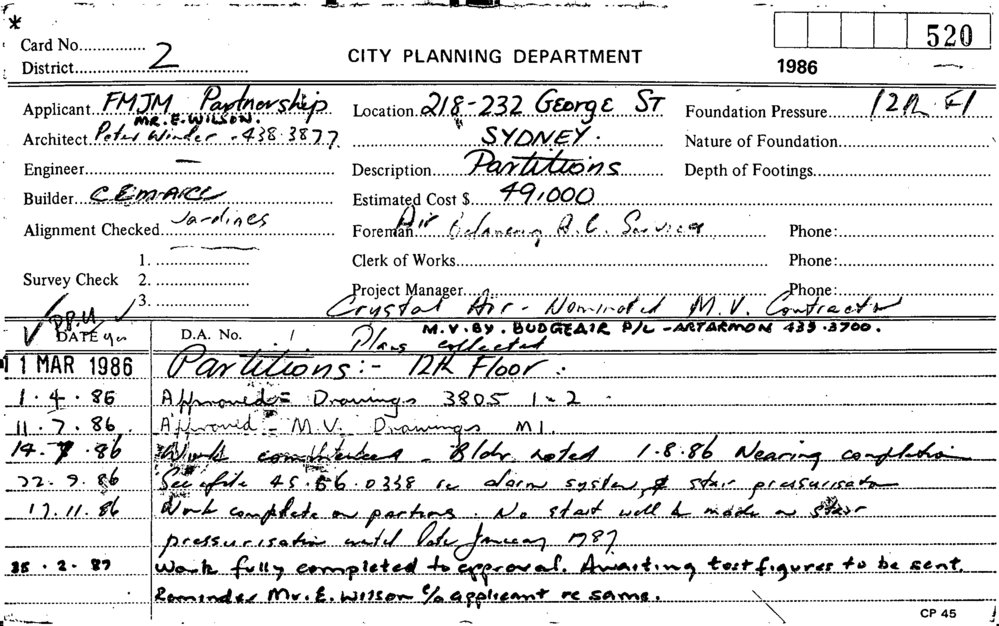 *
520
Card No.
District 2
CITY PLANNING DEPARTMENT
1986
Applicant FMJM Partnership
MR. E. WILSON.
Location 218-232 George ST
Foundation Pressure 12th Fl
Architect Peter Winder - 438.3877
SYDNEY.
Nature of Foundation
Engineer —
Description Partitions
Depth of Footings
Builder CEMARC
Estimated Cost $ 49,000
Alignment Checked Jardines
Foreman Air Balancing A.C. Services
Phone:
1.
Clerk of Works
Phone:
Survey Check 2.
Project Manager
Phone:
3.
Crystal Air - Nominated M.V. Contractor
M.V. BY. BUDGEAIR P/L - ARTARMON 439.3700.
DATE
D.A. No. /
Plans collected
11 MAR 1986 Partitions:- 12th Floor.
1.4.86 Approved = Drawings 3805 1-2
11.7.86. Approved - M.V. Drawings M1.
14.7.86 Work commenced - Bldr. noted 1.8.86 Nearing completion
22.9.86 See file 45.86.0338 re alarm system & stair pressurisation
17.11.86 Work complete on partions. No start will be made on stair
pressurisation until late January 1987
25.2.87 Work fully completed to approval. Awaiting test figures to be sent.
Reminder Mr. E. Wilson c/o applicant re same.
CP 45